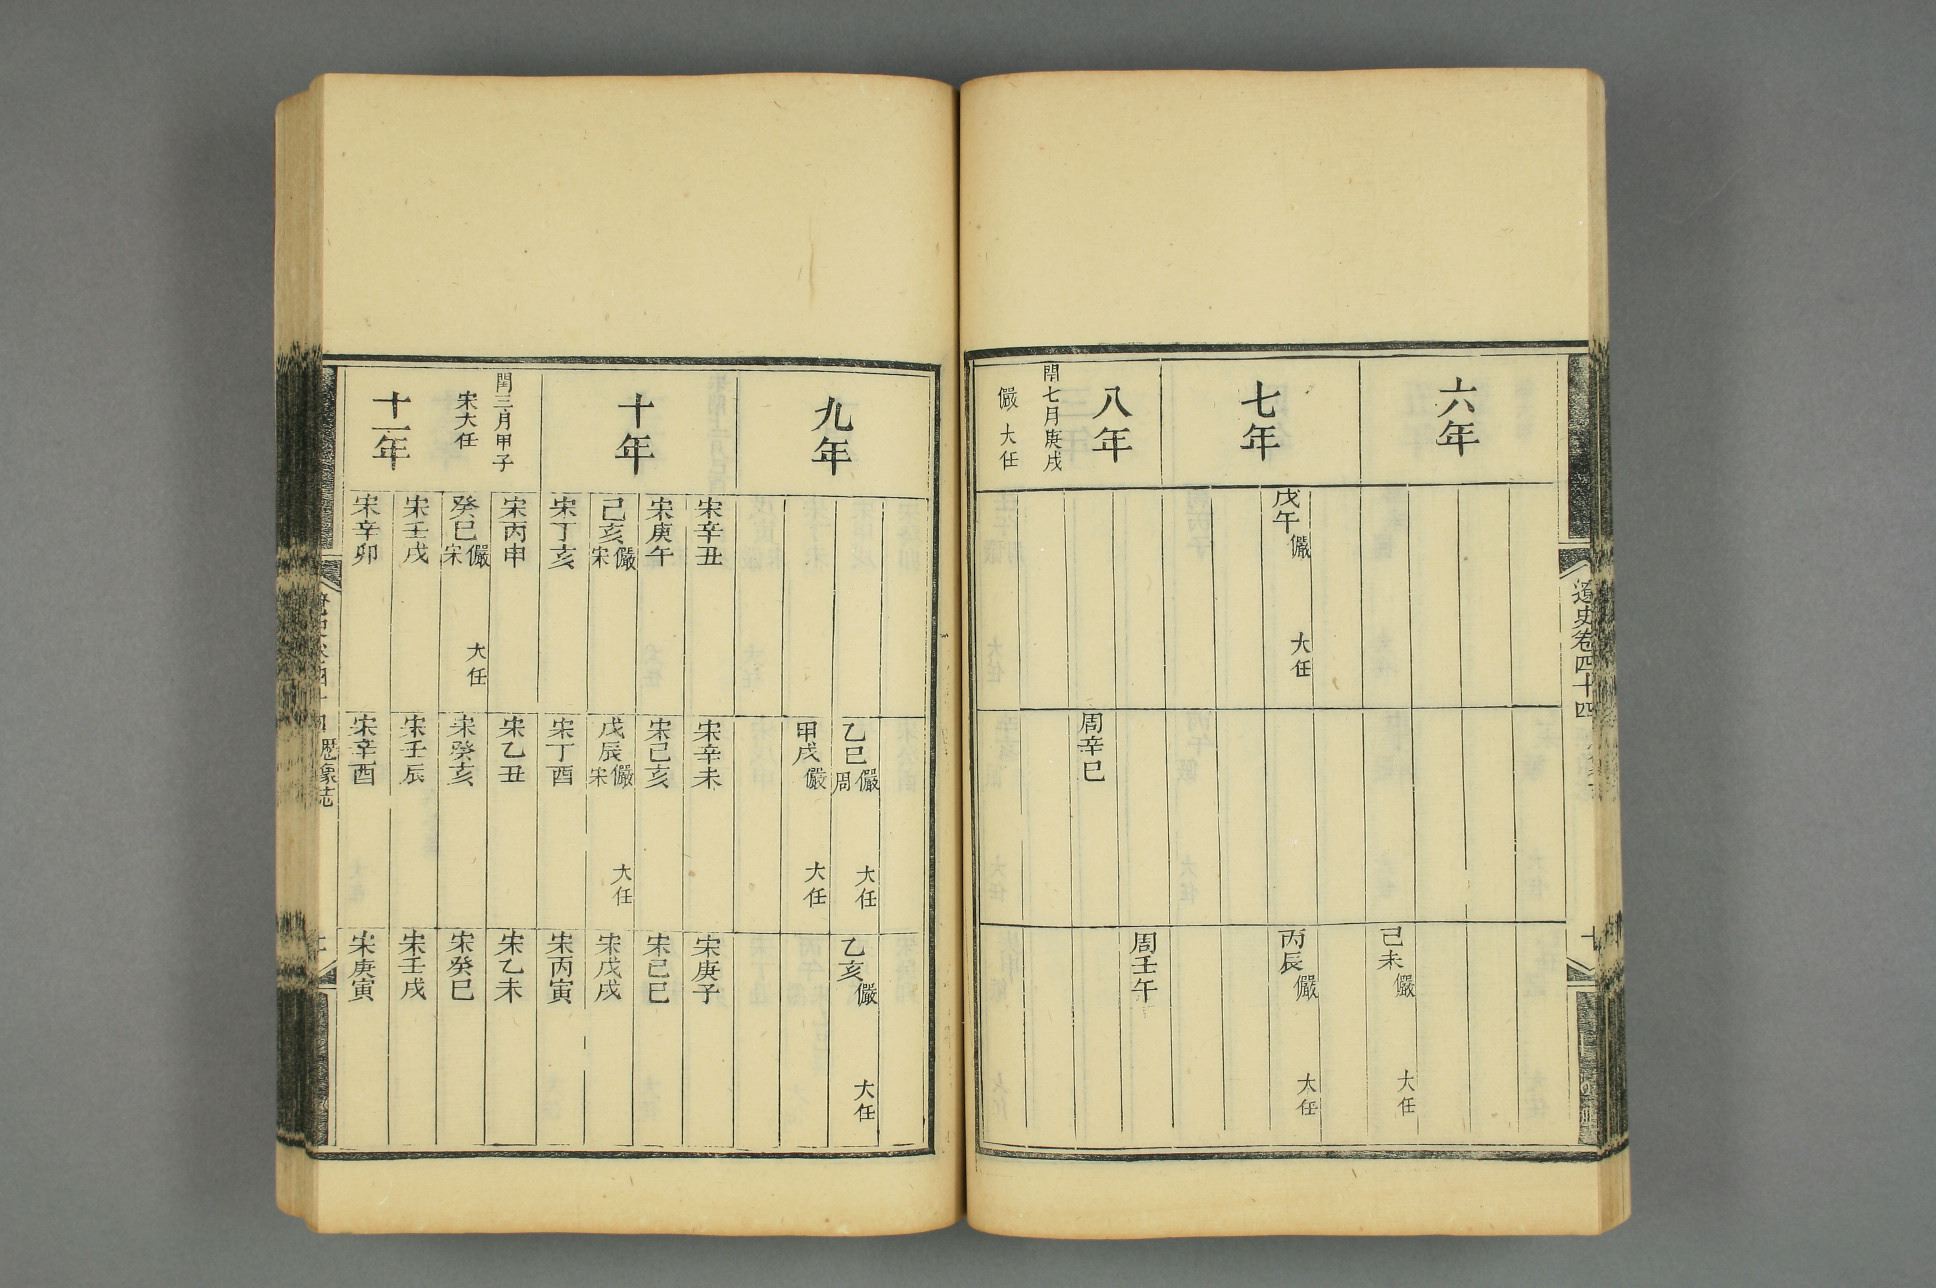 遼史卷四十四
十
六年
己未儼 大任
七年
戊午儼 大任
丙辰儼 大任
八年
閏七月庚戌
儼 大任
周壬午
周辛巳
九年
乙巳儼周 大任
乙亥儼 大任
甲戌儼 大任
十年
宋辛丑
宋辛未
宋庚子
宋庚午
宋己亥
宋己巳
己亥儼宋
戊辰儼宋 大任
宋戊戌
宋丁亥
宋丁酉
宋丙寅
閏三月甲子
宋大任
宋丙申
宋乙丑
宋乙未
癸巳儼宋 大任
宋癸亥
宋癸巳
十一年
宋壬戌
宋壬辰
宋壬戌
宋辛卯
宋辛酉
宋庚寅
歷象誌